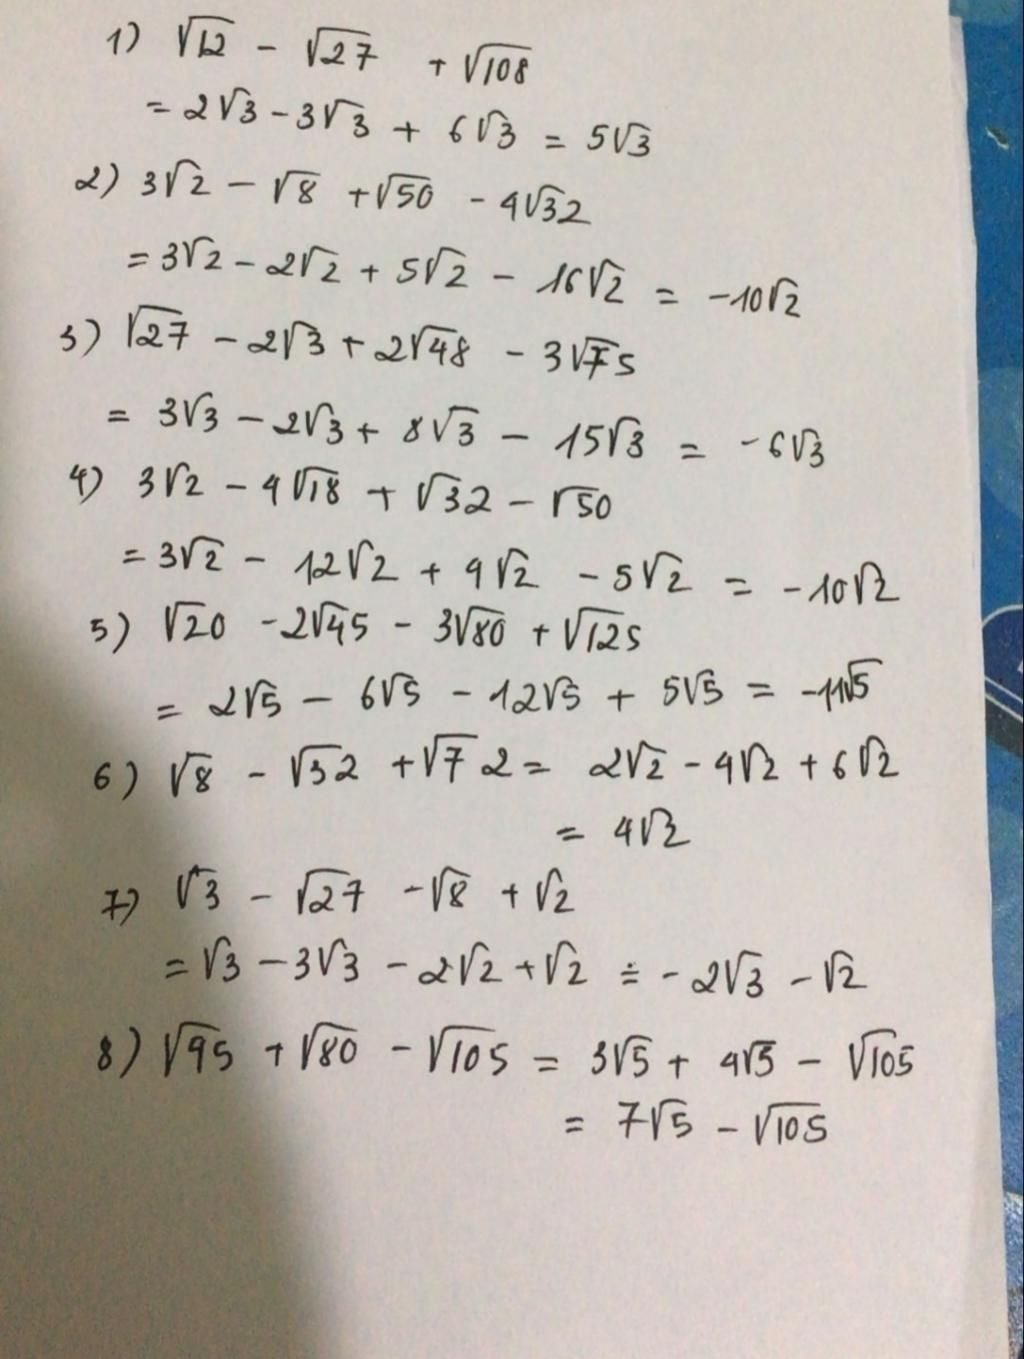 1) √12 - √27 + √108
= 2√3 - 3√3 + 6√3 = 5√3
2) 3√2 - √8 + √50 - 4√32
= 3√2 - 2√2 + 5√2 - 16√2 = -10√2
3) √27 - 2√3 + 2√48 - 3√75
= 3√3 - 2√3 + 8√3 - 15√3 = -6√3
4) 3√2 - 4√18 + √32 - √50
= 3√2 - 12√2 + 4√2 - 5√2 = -10√2
5) √20 - 2√45 - 3√80 + √125
= 2√5 - 6√5 - 12√5 + 5√5 = -11√5
6) √8 - √32 + √72 = 2√2 - 4√2 + 6√2
= 4√2
7) √3 - √27 - √8 + √2
= √3 - 3√3 - 2√2 + √2 = -2√3 - √2
8) √45 + √80 - √105 = 3√5 + 4√5 - √105
= 7√5 - √105